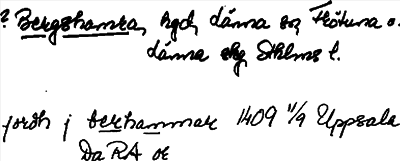 ? Bergshamra, hgd, därna sn, Frötuna o.
därna skg Sthlms l.
jordh j berhammar 1409 11/9 Uppsala
Da RA or